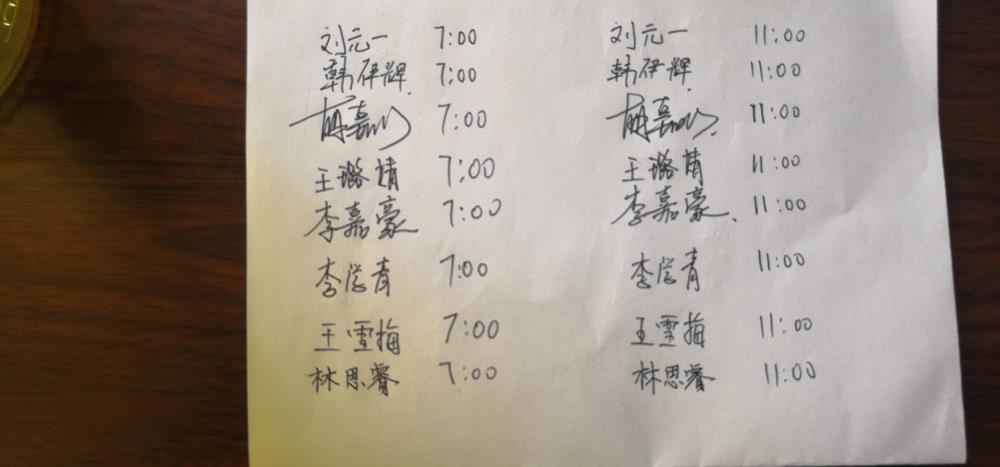 刘元一 7:00 刘元一 11:00
韩伊辉 7:00 韩伊辉 11:00
7:00 11:00
王璐婧 7:00 王璐婧 11:00
李嘉豪 7:00 李嘉豪 11:00
李学青 7:00 李学青 11:00
王雪梅 7:00 王雪梅 11:00
林思睿 7:00 林思睿 11:00